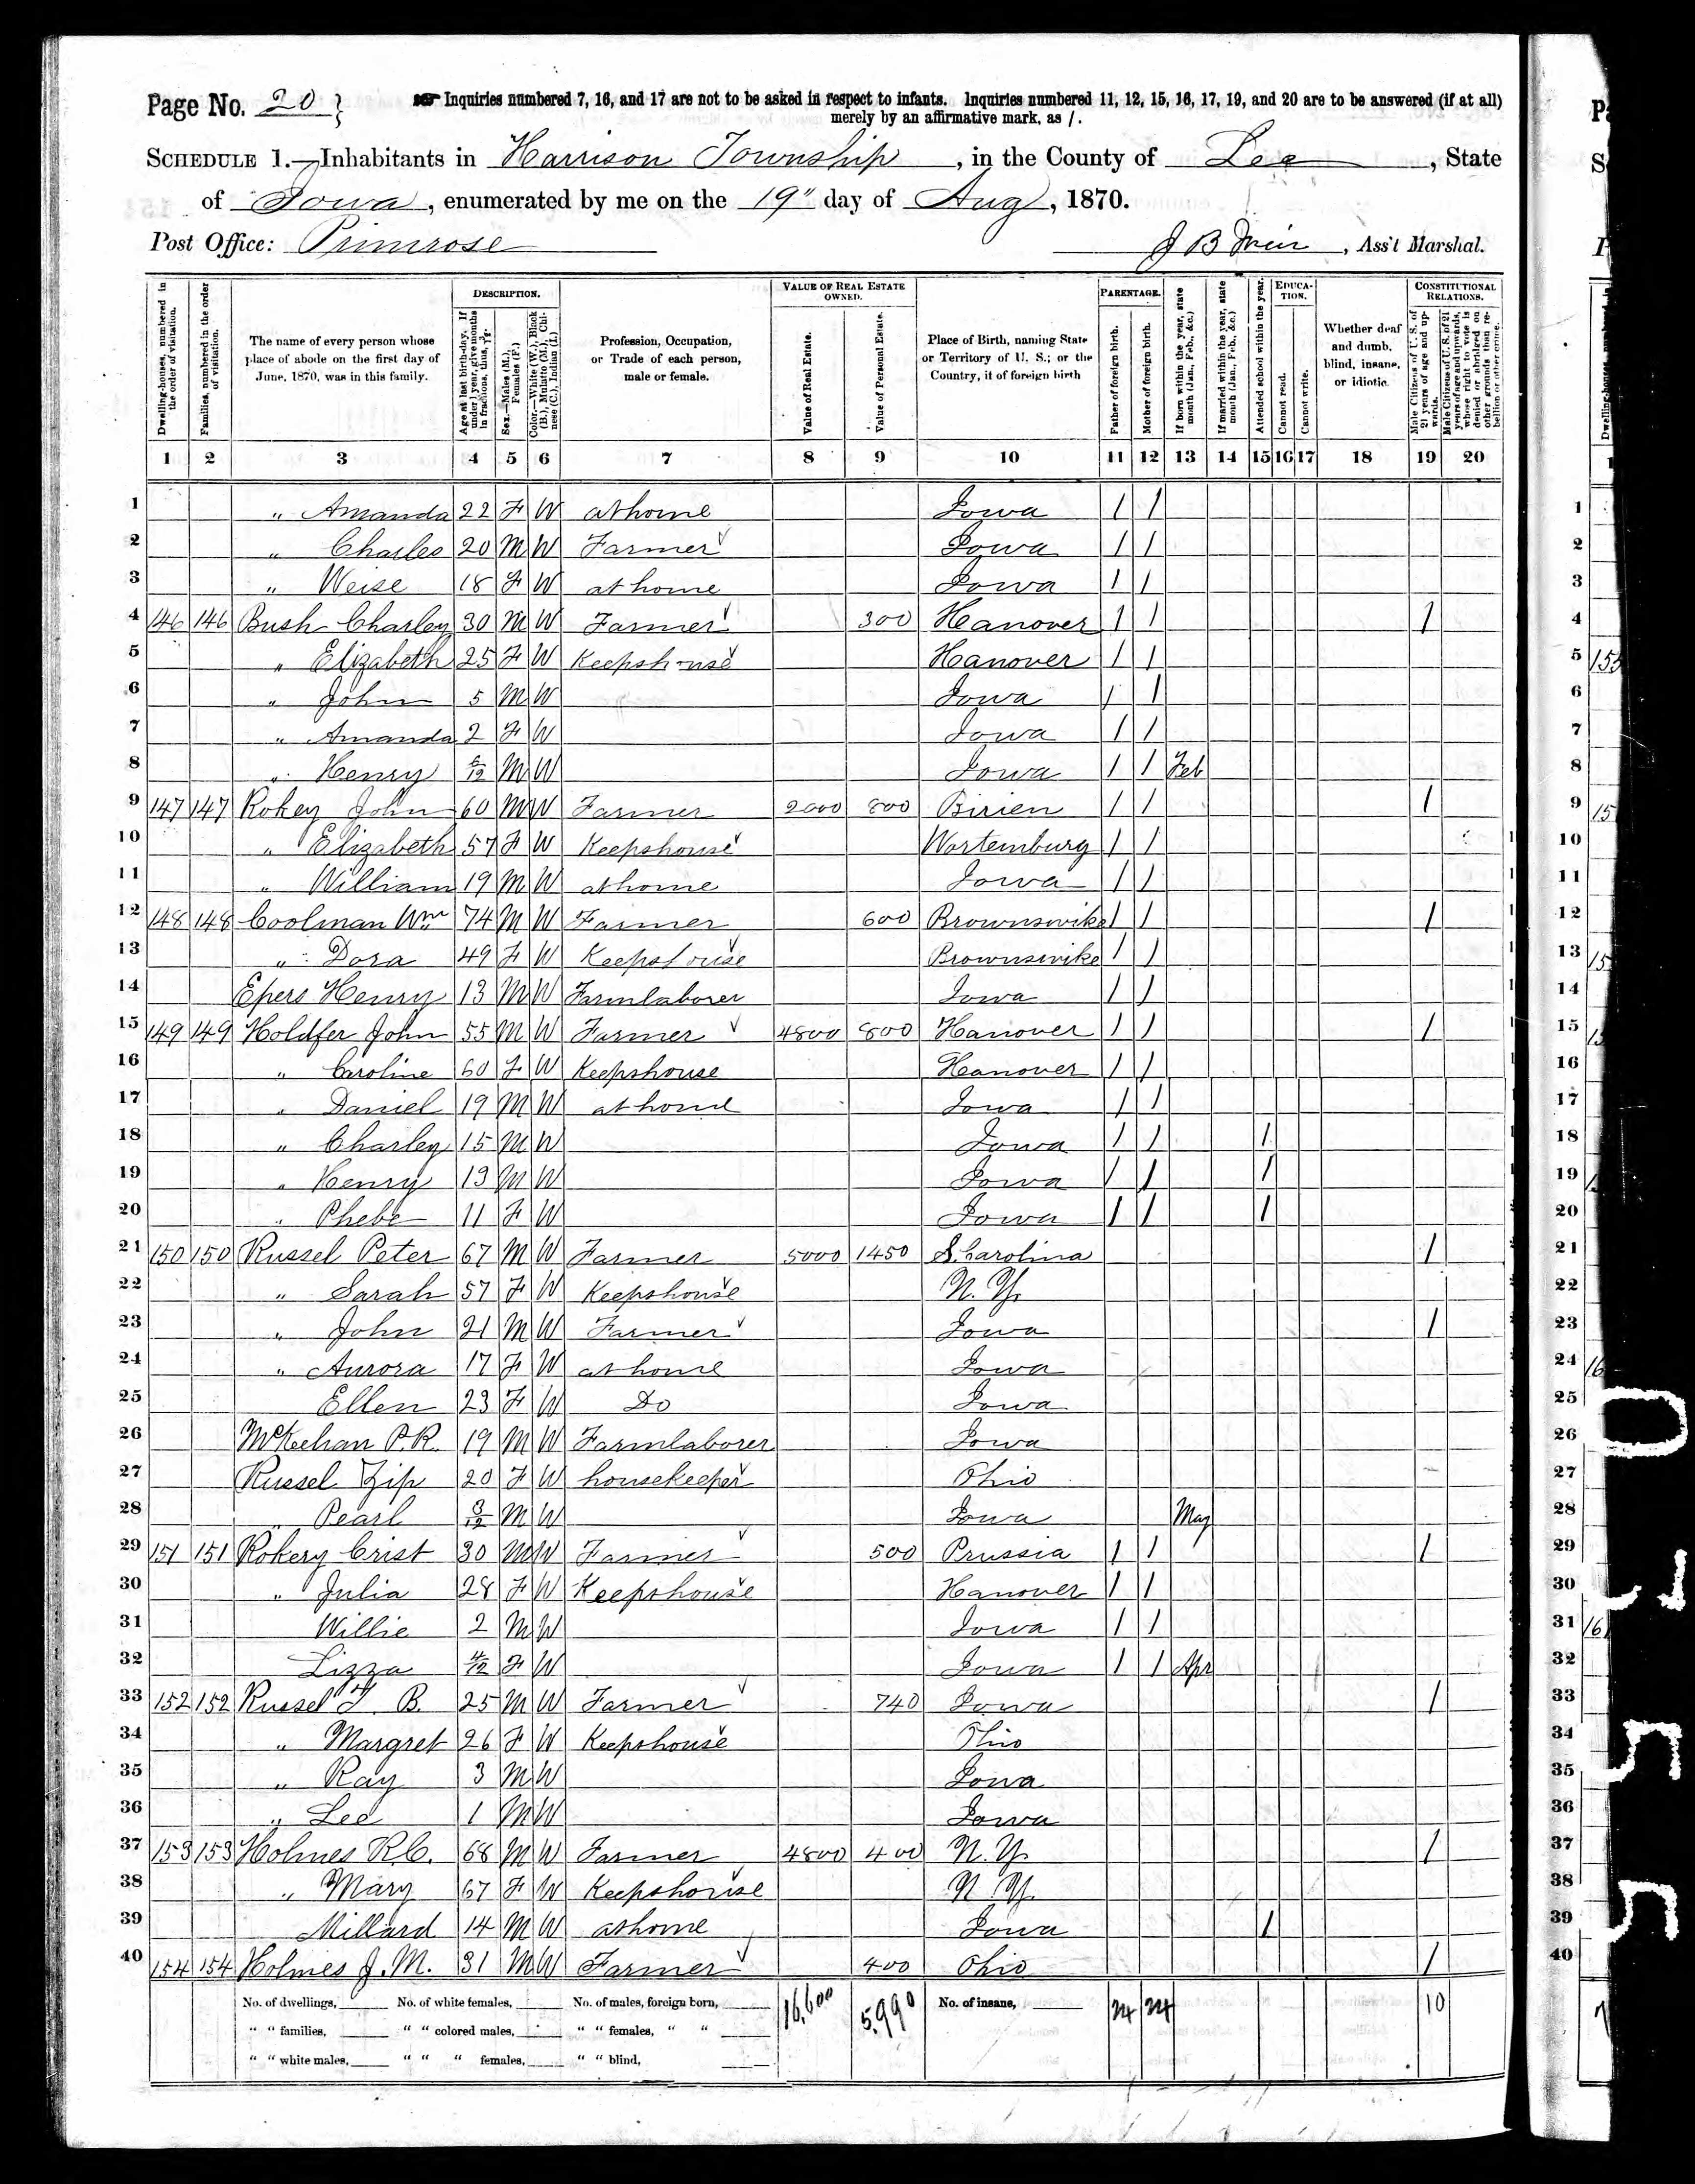 Page No. 20 } Inquiries numbered 7, 16, and 17 are not to be asked in respect to infants. Inquiries numbered 11, 12, 15, 16, 17, 19, and 20 are to be answered (if at all)
merely by an affirmative mark, as /.
SCHEDULE 1.—Inhabitants in Harrison Township, in the County of Lee, State
of Iowa, enumerated by me on the 19" day of Aug, 1870.
Post Office: Primrose J B , Ass't Marshal.
Dwelling-houses, numbered in the order of visitation.
Families, numbered in the order of visitation.
The name of every person whose place of abode on the first day of June, 1870, was in this family.
DESCRIPTION.
Age at last birth-day. If under 1 year, give months in fractions, thus, 3/12.
Sex.—Males (M.), Females (F.)
Color.—White (W.), Black (B.), Mulatto (M.), Chinese (C.), Indian (I.)
Profession, Occupation, or Trade of each person, male or female.
VALUE OF REAL ESTATE OWNED.
Value of Real Estate.
Value of Personal Estate.
Place of Birth, naming State or Territory of U. S.; or the Country, if of foreign birth
PARENTAGE.
Father of foreign birth.
Mother of foreign birth.
If born within the year, state month (Jan., Feb., &c.)
If married within the year, state month (Jan., Feb., &c.)
Attended school within the year.
EDUCATION.
Cannot read.
Cannot write.
Whether deaf and dumb, blind, insane, or idiotic.
CONSTITUTIONAL RELATIONS.
Male Citizens of U. S. of 21 years of age and upwards.
Male Citizens of U. S. of 21 years of age and upwards, whose right to vote is denied or abridged on other grounds than rebellion or other crime.
1 2 3 4 5 6 7 8 9 10 11 12 13 14 15 16 17 18 19 20
1 " Amanda 22 F W at home Iowa / /
2 " Charles 20 M W Farmer Iowa / /
3 " Weise 18 F W at home Iowa / /
4 146 146 Bush Charley 30 M W Farmer 300 Hanover / / /
5 " Elizabeth 25 F W Keepshouse Hanover / /
6 " John 5 M W Iowa / /
7 " Amanda 2 F W Iowa / /
8 " Henry /12 M W Iowa / / Feb
9 147 147 Rokey John 60 M W Farmer 2000 800 Birien / / /
10 " Elizabeth 57 F W Keepshouse Wortemburg / /
11 " William 19 M W at home Iowa / /
12 148 148 Coolman Wm 74 M W Farmer 600 Brownswike / / /
13 " Dora 49 F W Keepshouse Brownswike / /
14 Epers Henry 13 M W Farmlaborer Iowa / /
15 149 149 Holdfer John 55 M W Farmer 4800 800 Hanover / / /
16 " Caroline 60 F W Keepshouse Hanover / /
17 " Daniel 19 M W at home Iowa / /
18 " Charley 15 M W Iowa / / /
19 " Henry 13 M W Iowa / / /
20 " Phebe 11 F W Iowa / / /
21 150 150 Russel Peter 67 M W Farmer 5000 1450 S. Carolina /
22 " Sarah 57 F W Keepshouse N. Y.
23 " John 21 M W Farmer Iowa /
24 " Aurora 17 F W at home Iowa
25 Ellen 23 F W Do Iowa
26 McKeehan P. R. 19 M W Farmlaborer Iowa
27 Russel Zip 20 F W housekeeper Ohio
28 " Pearl 3/12 M W Iowa May
29 151 151 Rokery Crist 30 M W Farmer 500 Prussia / / /
30 " Julia 28 F W Keepshouse Hanover / /
31 Willie 2 M W Iowa / /
32 Lizza 4/12 F W Iowa / / Apr
33 152 152 Russel T. B. 25 M W Farmer 740 Iowa /
34 " Margret 26 F W Keepshouse Ohio
35 " Ray 3 M W Iowa
36 " Lee 1 M W Iowa
37 153 153 Holmes R. C. 68 M W Farmer 4800 400 N. Y. /
38 " Mary 67 F W Keepshouse N. Y.
39 Millard 14 M W at home Iowa /
40 154 154 Holmes J. M. 31 M W Farmer 400 Ohio /
No. of dwellings, No. of white females, No. of males, foreign born, 16,600 5,990 No. of insane, 24 24 10
" " families, " " colored males, " " females, " "
" " white males, " " " females, " " blind,